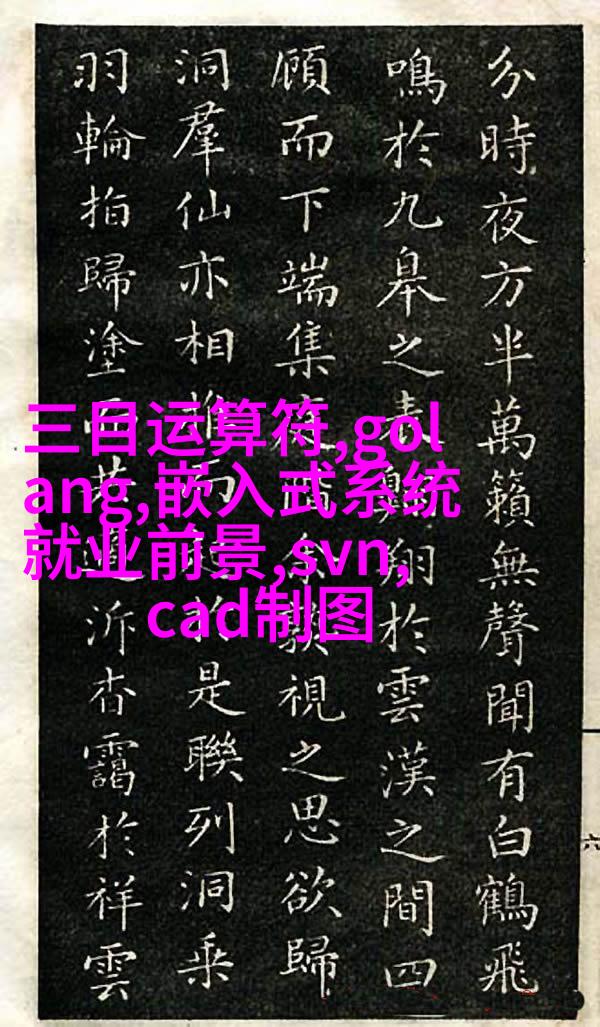 分時夜方半萬籟無聲聞有白鶴飛
鳴於九皋之表翔於雲漢之間四
顧而下端集余視之思欲歸
洞羣仙亦相而於是聯列洞乘
羽輪拍歸塗泝杳靄於祥雲
三目运算符,gol
ang,嵌入式系统
就业前景,svn,
cad制图
六